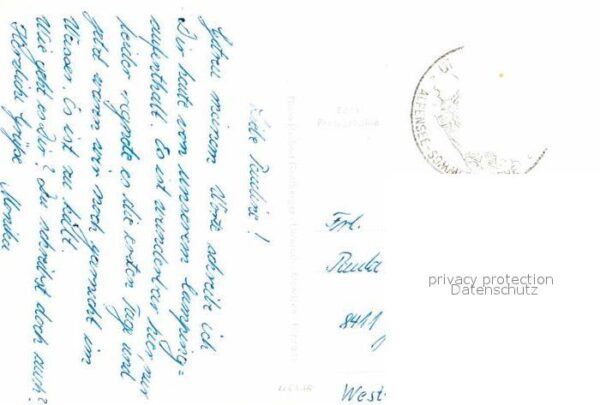 Liebe Paula!
Getreu meinem Wort schreibe ich
Dir heute von unserem Camping=
aufenthalt. Es ist wunderbar hier, nur
leider regnete es die ersten Tag und
jetzt waren wir noch garnicht im
Wasser. Es ist zu kalt.
Wie geht es Dir? Du schreibst doch auch?
Herzliche Grüße Monika
Frl.
Paula
8411
West-
Echte
Photographie
privacy protection
Datenschutz